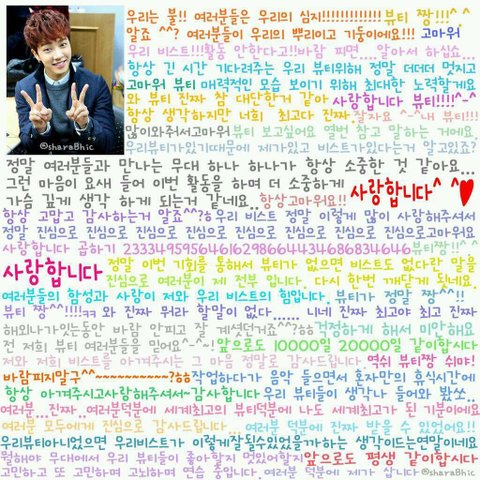 우리는 불!! 여러분들은 우리의 심지!!!!!!!!!!!!!! 뷰티 짱!!!^.^
알죠 ^^? 여러분들이 우리의 뿌리이고 기둥이에요!!! 고마워
우리 비스트!!!활동 안한다고!!바람 피면....알아서 하십쇼...
항상 긴 시간 기다려주는 우리 뷰티위해 정말 더더더 멋지고
고마워 뷰티 매력적인 모습 보이기 위해 최대한 노력할게요
와 뷰티 진짜 참 대단한거 같아 사랑합니다 뷰티!!!!^-^
항상 생각하지만 너희 최고다 진짜 잘자요 ^-^내 뷰티!!!
@sharaBhic 많이와주서고마워 뷰티 보고싶어요 열번 참고 말하는 거에요.
우리뷰티가있기때문에 제가있고 비스트가있다는거 알고있죠?
정말 여러분들과 만나는 무대 하나 하나가 항상 소중한 것 같아요...
그런 마음이 요새 들어 이번 활동을 하며 더 소중하게
가슴 깊게 생각 하게 되는거 같네요..항상고마워요!! 사랑합니다^ ^♥
항상 고맙고 감사하는거 알죠^^?ㅎ우리 비스트 정말 이렇게 많이 사랑해주셔서
정말 진심으로 진심으로 진심으로 진심으로 진심으로 진심으로고마워요
사랑합니다 곱하기 2333495956461629866443468683464뷰티짱!!^ ^
사랑합니다 정말 이번 기회를 통해서 뷰티가 없으면 비스트도 없다란 말을
진심으로 여러분이 제 전부 입니다. 다시 한번 깨닫게 됐네요.
여러분들의 함성과 사랑이 저와 우리 비스트의 힘입니다. 뷰티가 정말 짱^^!!
뷰티 짱^^!!!!ㅋㅋ 와 진짜 뭐라 할말이 없다...... 니네 진짜 최고야 최고 진짜
해외나가있는동안 바람 안피고 잘 계셧던거죠^^?ㅎㅎ걱정하게 해서 미안해요
전 저희 뷰티 여러분들을 믿어요^-^~! 앞으로도 10000일 20000일 같이합시다
저와 저희 비스트를 아껴주시는 그 마음 정말로 감사드립니다. 역쉬 뷰티짱 쉬야!
바람피지말구^^~~~~~~~~~~?ㅎㅎ작업하다가 음악 들으면서 혼자만의 휴식시간에
항상 아껴주시고사랑해주셔서감사합니다 우리 뷰티들이 생각나 들어와 봤쏘..
여러분...진짜..여러분덕분에 세계최고의 뷰티덕분에 나도 세계최고가 된 기분이에요
여러분 모두에게 진심으로 감사드립니다... 여러분 덕분에 진짜 받을 수 있었어요!!
우리뷰티아니었으면 우리비스트가 이렇게잘될수있었을가하는 생각이드는연말이네요
뭘해야 무대에서 우리 뷰티들이 좋아할지 멋있어할지 앞으로도 평생 같이합시다
고민하고 또 고민하고 고뇌하며 연습 중입니다. 여러분 덕분에 제가 삽니다 @sharaBhic